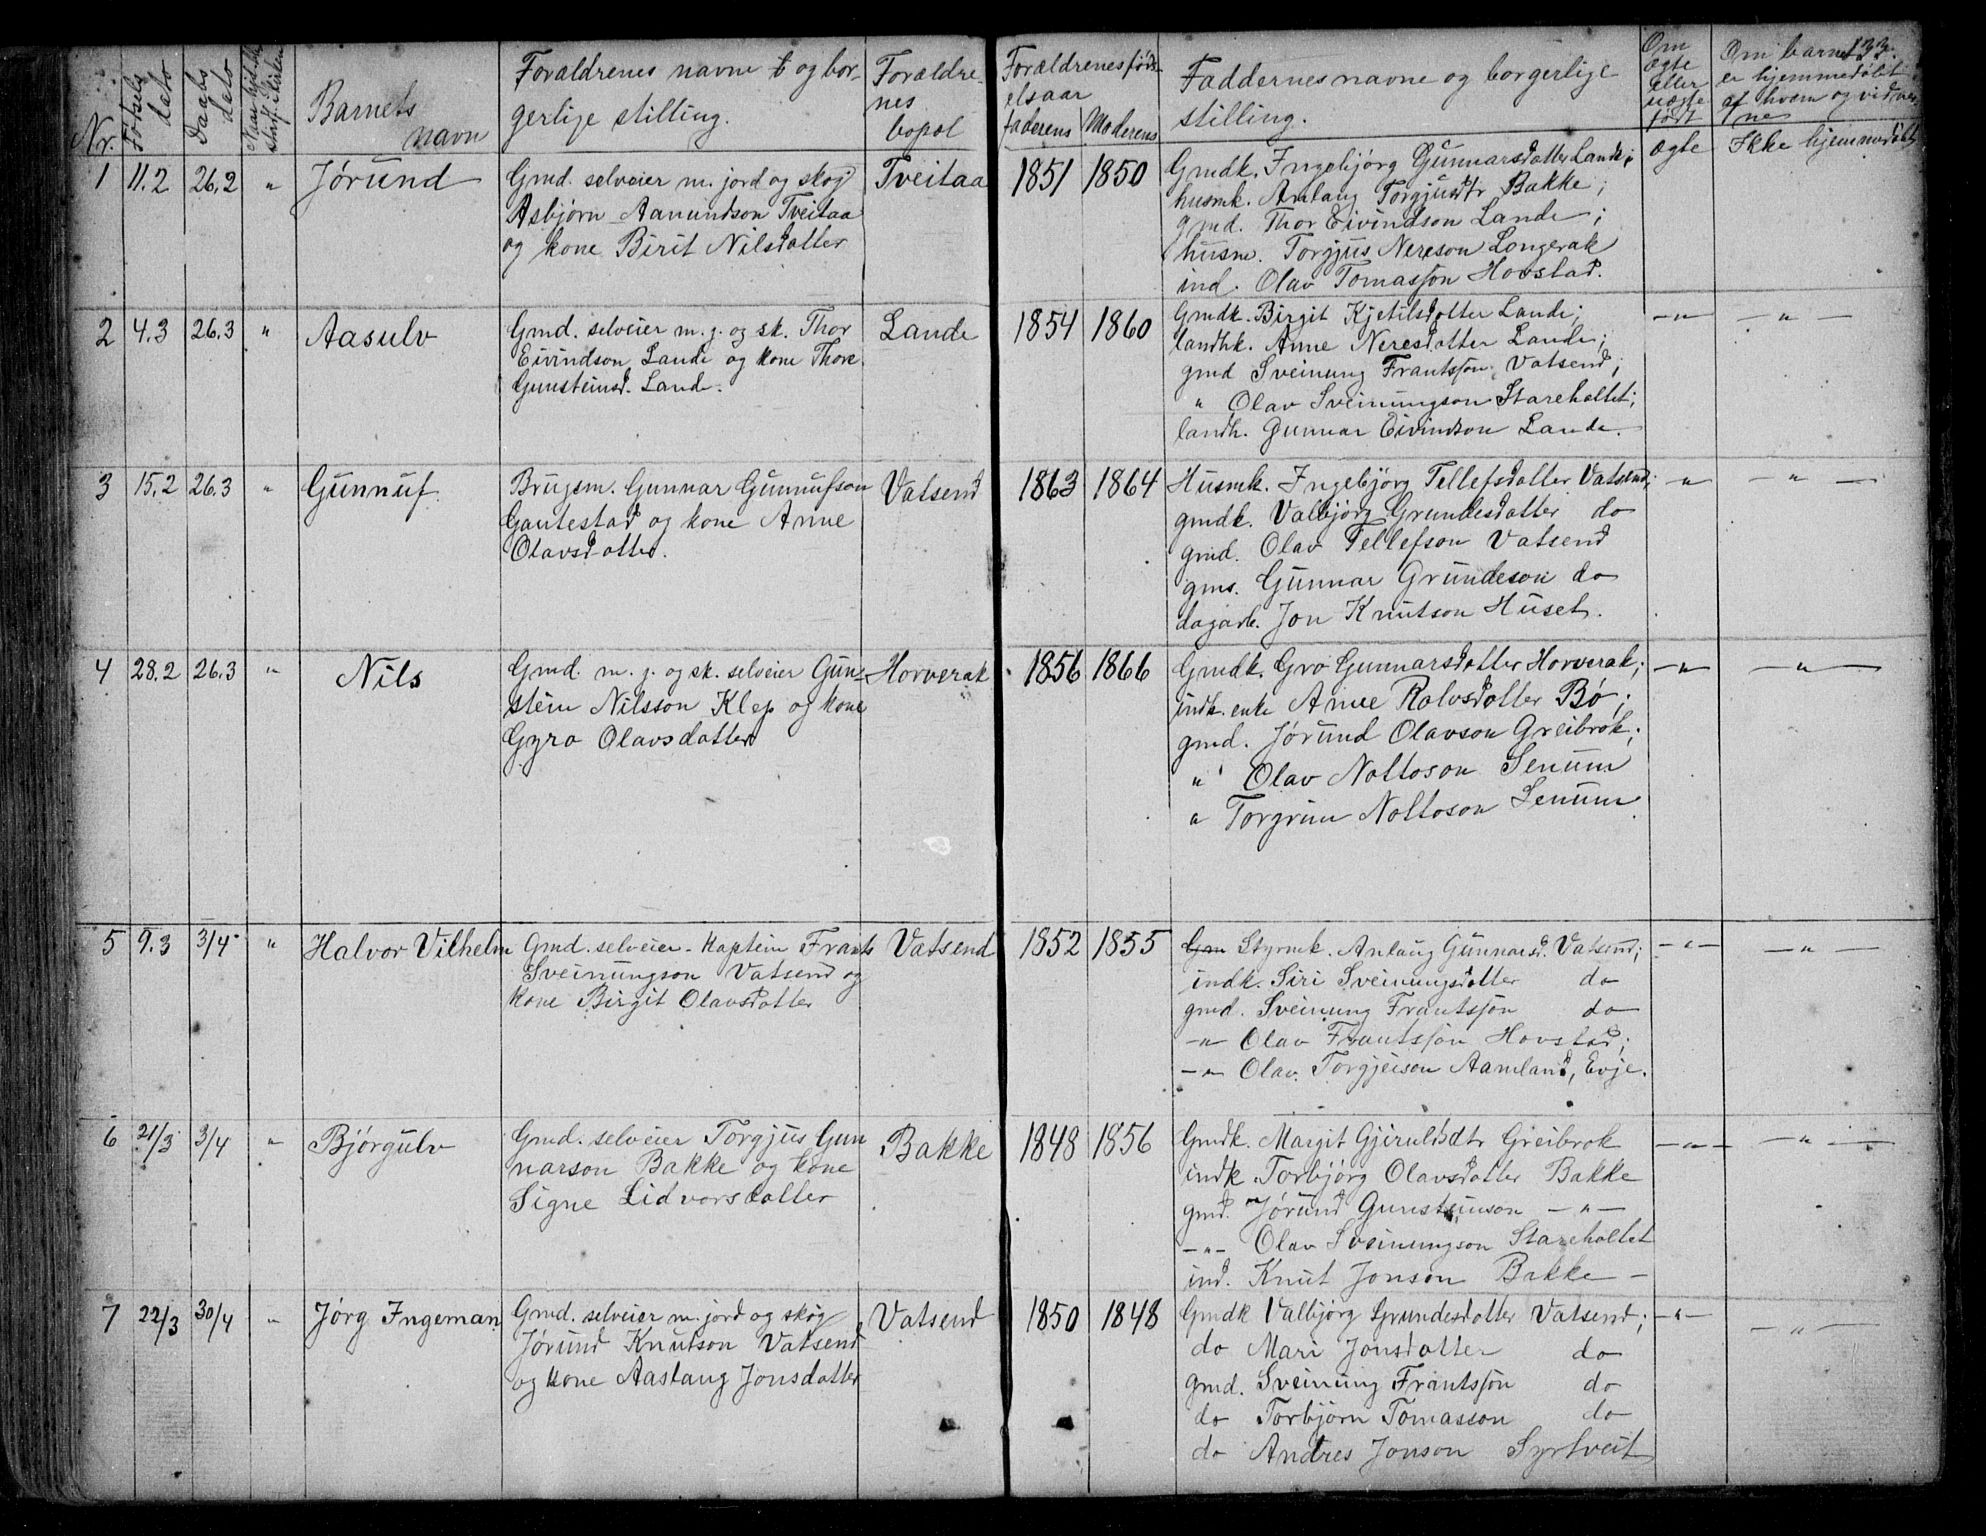 133.
Nr.
Fötsels dato
Daabs dato
Barnets navn
Forældrenes navne og bor-
gerlige stilling.
Forældre-
nes
bopöl
Forældrenes föds-
elsaar
faderens Moderens
Faddernes navne og borgerlige
stilling.
Om
ægte
eller
uægte
födt
Om barnet
er hjemmedöbt
af hvem og vidner-
ne
1 11.2 26.2 " Jörund
Gmd. selveier m. jord og skog
Asbjörn Aanundson Tveitaa
og kone Birit Nilsdatter
Tveitaa
1851 1850
Gmdk. Ingebjörg Gunnarsdatter Lande;
husmk. Anlaug Torgjusdtr Bakke;
gmd. Thor Eivindson Lande;
husm. Torgjus Nereson Longerak
ind. Olav Tomasson Hovstad.
ægte
Ikke hjemmedöbt
2 4.3 26.3 " Aasulv
Gmd. selveier m. j. og sk. Thor
Eivindson Lande og kone Thore
Gunsteinsd. Lande.
Lande
1854 1860
Gmdk. Birgit Kjetilsdatter Lande;
landhk. Anne Neresdatter Lande;
gmd Sveinung Frantsson Vatsend;
" Olav Sveinungson Stareholtet;
landh. Gunnar Eivindson Lande.
—"— — " —
3 15.2 26.3 " Gunnuf.
Brugsm. Gunnar Gunnufson
Gautestad og kone Anne
Olavsdatter.
Vatsend
1863 1864
Husmk. Ingebjörg Tellefsdatter Vatsend;
gmdk. Valbjörg Grundesdatter do
gmd. Olav Tellefson Vatsend
gms. Gunnar Grundeson do
dagarb. Jon Knutson Huset.
—"— — " —
4 28.2 26.3 " Nils
Gmd. m. j. og sk. selveier Gun-
stein Nilsson Klep og kone
Gyro Olavsdatter
Horverak
1856 1866
Gmdk. Gro Gunnarsdatter Horverak;
indk. enke Anne Rolvsdatter Bö;
gmd. Jörund Olavson Greibrok;
" Olav Nottoson Senum
" Torgrim Nottoson Senum
—"— —"—
5 9.3 3/4 " Halvor Vilhelm
Gmd. selveier - Kaptein Frants
Sveinungson Vatsend og
kone Birgit Olavsdatter
Vatsend
1852 1855
Gm Styrmk. Anlaug Gunnarsd. Vatsend;
indk. Siri Sveinungsdatter do
gmd. Sveinung Frantsson do
—"— Olav Frantsson Hovstad;
—"— Olav Torgjeison Aamland, Evje.
—"— —"—
6 21/3 3/4 " Björgulv
Gmd. selveier Torgjus Gun
narson Bakke og kone
Signe Lidvorsdatter
Bakke
1848 1856
Gmdk. Margit Gjerulfsdtr Greibrok
indk. Torbjörg Olavsdatter Bakke
gmd. Jörund Gunsteinson —"—
—"— Olav Sveinungson Stareholtet
ind. Knut Jonson Bakke —
—"— —"—
7 22/3 30/4 " Jörg Ingeman
Gmd. selveier m. jord og skog
Jörund Knutson Vatsend
og kone Aaslaug Jonsdatter
Vatsend
1850 1848
Gmdk Valbjörg Grundesdatter Vatsend;
do Mari Jonsdatter do
gmd. Sveinung Frantsson do
do Torbjörn Tomasson do
do Andres Jonson Syrtveit
—"— —"—